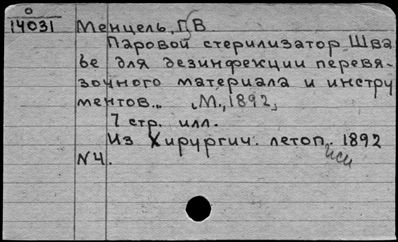 О
14031 Менцель, Г, В
Паровой стерилизатор Шва
бе для дезинфекции перевя-
зочного материала и инстру
ментов.. М., 1892,
7 стр. илл.
Из Хирургич. летоп. 1892
N4.